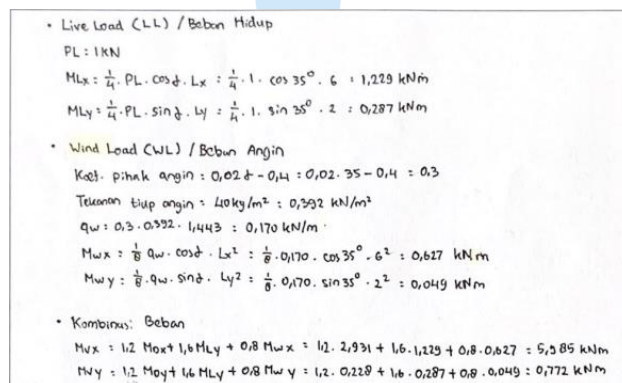 • Live Load (LL) / Beban Hidup
PL : 1 KN
MLx : 1/4 . PL . cos α . Lx : 1/4 . 1 . cos 35° . 6 : 1,229 kNm
MLy : 1/4 . PL . sin α . Ly : 1/4 . 1 . sin 35° . 2 : 0,287 kNm
• Wind Load (WL) / Beban Angin
Koef. pihak angin : 0,02 α - 0,4 : 0,02 . 35 - 0,4 : 0,3
Tekanan tiup angin : 40 kg/m² : 0,392 kN/m²
qw : 0,3 . 0,392 . 1,443 : 0,170 kN/m
Mwx : 1/8 qw . cos α . Lx² : 1/8 . 0,170 . cos 35° . 6² : 0,627 kNm
Mwy : 1/8 . qw . sin α . Ly² : 1/8 . 0,170 . sin 35° . 2² : 0,049 kNm
• Kombinasi Beban
Mux : 1,2 MDx + 1,6 MLy + 0,8 Mwx : 1,2 . 2,931 + 1,6 . 1,229 + 0,8 . 0,627 : 5,985 kNm
Muy : 1,2 MDy + 1,6 MLy + 0,8 Mwy : 1,2 . 0,228 + 1,6 . 0,287 + 0,8 . 0,049 : 0,772 kNm